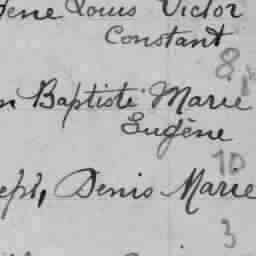 Louis Victor
Constant
8
Baptiste Marie
Eugène
10
Denis Marie
3